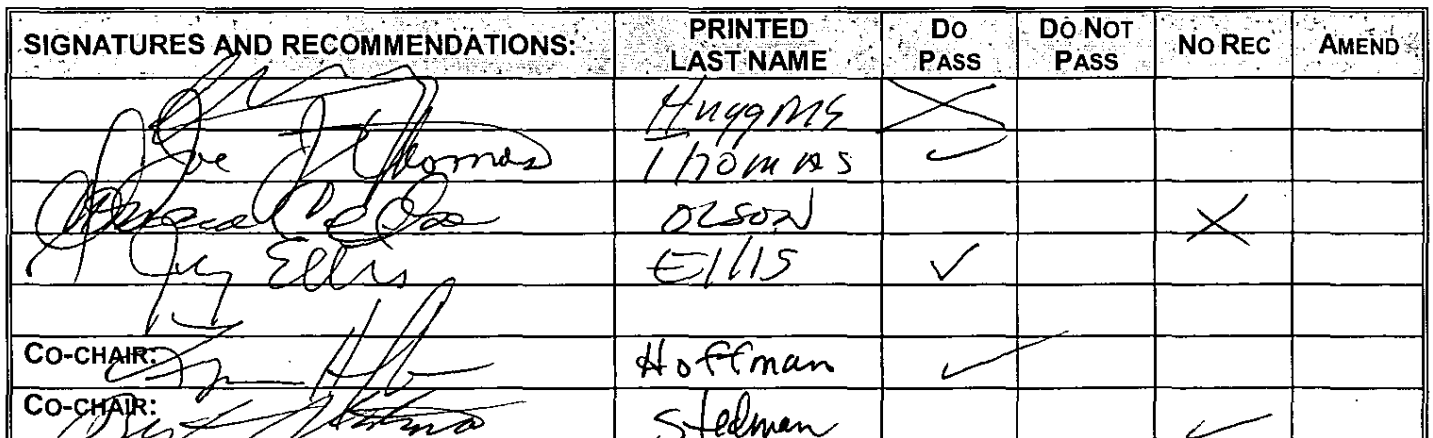 SIGNATURES AND RECOMMENDATIONS: PRINTED LAST NAME DO PASS DO NOT PASS NO REC AMEND
Huggins X
Joe J Thomas THOMAS ✓
OLSON X
Ellis Ellis ✓
CO-CHAIR: Hoffman ✓
CO-CHAIR: Stedman ✓